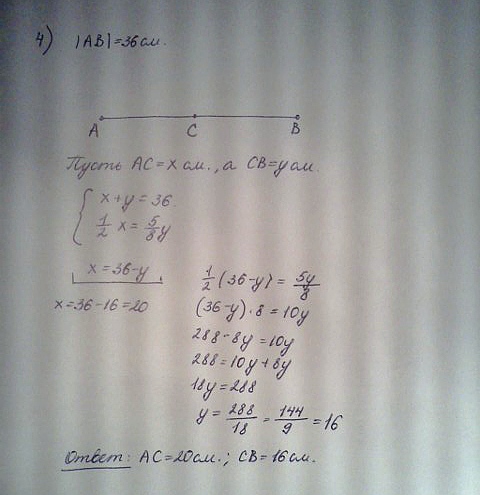 4) |AB|=36см.
A C B
Пусть AC=x см., а CB=y см.
{ x+y=36.
1/2 x = 5/8 y
x=36-y
x=36-16=20
1/2 (36-y) = 5y/8
(36-y)·8=10y
288-8y=10y
288=10y+8y
18y=288
y = 288/18 = 144/9 = 16
Ответ: AC=20см.; CB=16см.